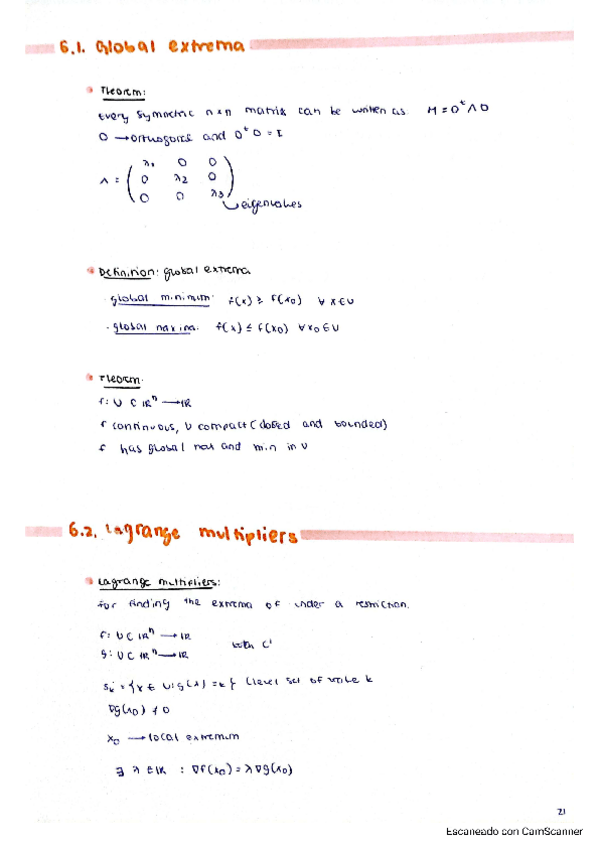 6.1. Global extrema
Theorem:
Every symmetric n×n matrix can be writen as M = O^t Λ O
O → orthogonal and O^t O = I
Λ = ( λ1 0 0
0 λ2 0
0 0 λ3 )
eigenvalues
Definition: global extrema
· global minimum: f(x) ≥ f(x0) ∀ x ∈ U
· global maxima: f(x) ≤ f(x0) ∀ x0 ∈ U
Theorem:
f: U ⊂ IR^n → IR
f continuous, U compact (closed and bounded)
f has global max and min in U
6.2. Lagrange multipliers
Lagrange multipliers:
For finding the extrema of under a restriction.
f: U ⊂ IR^n → IR
g: U ⊂ IR^n → IR
both C^1
Sk = {x ∈ U : g(x) = k} (level set of value k
∇g(x0) ≠ 0
x0 → local extremum
∃ λ ∈ IR : ∇f(x0) = λ∇g(x0)
21
Escaneado con CamScanner